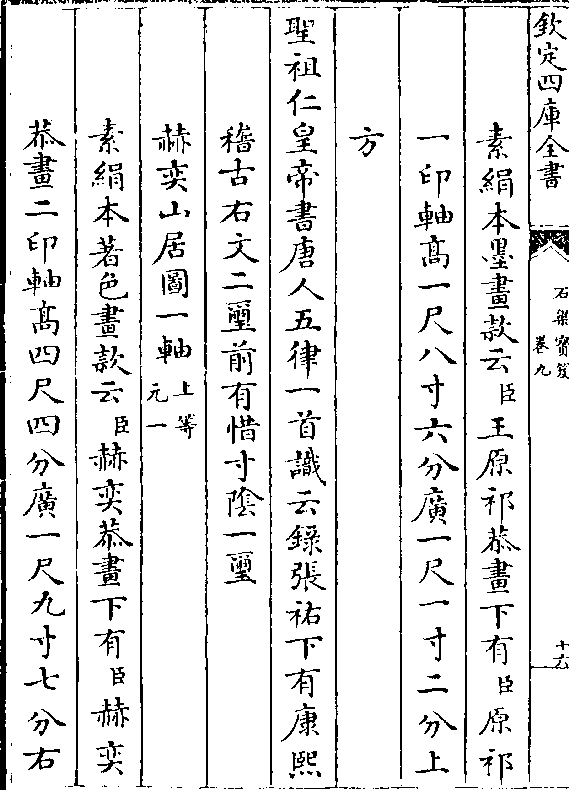 欽定四庫全書
石渠寳笈
卷九
十六
素絹本墨畫款云臣王原祁恭畫下有臣原祁
一印軸髙一尺八寸六分廣一尺一寸二分上
方
聖祖仁皇帝書唐人五律一首識云錄張祜下有康熙
稽古右文二璽前有惜寸陰一璽
赫奕山居圖一軸上等元一
素絹本著色畫款云臣赫奕恭畫下有臣赫奕
恭畫二印軸髙四尺四分廣一尺九寸七分右